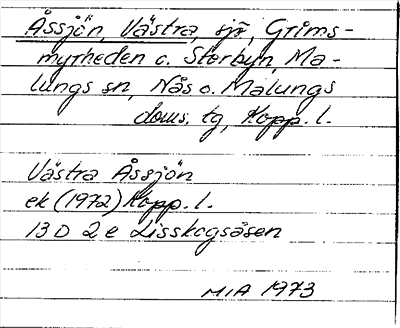 Åssjön, Västra, sjö, Gríms-
myrheden o. Storbyn, Ma-
lungs sn, Nås o. Malungs
doms. tg, Kopp. l.
Västra Åssjön
ek (1972) Kopp. l.
13 D 2 e Lisskogsåsen
MIA 1973